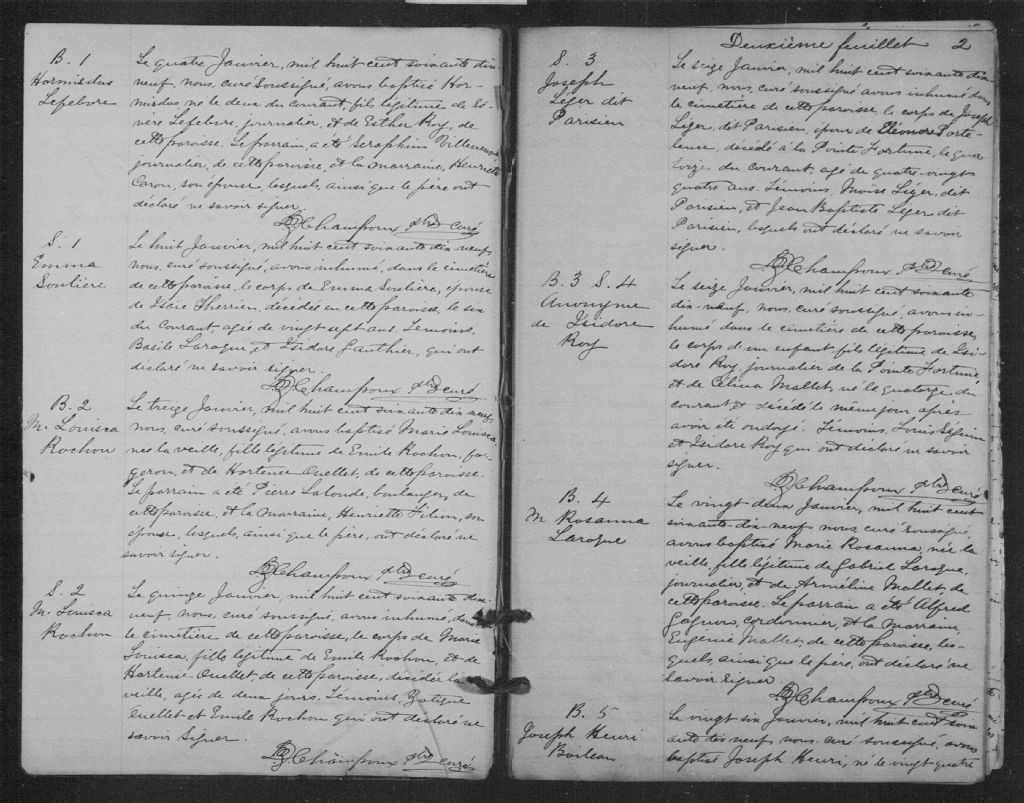 B. 1
Hormisdas
Lefebvre
Le quatre Janvier, mil huit cent soixante dix
neuf, nous, curé soussigné, avons baptisé Hor-
misdas, né le deux du courant, fils légitime de Sé-
vère Lefebvre, journalier, et de Esther Roy, de
cette paroisse. Le parrain a été Séraphin Villeneuve
journalier, de cette paroisse, et la marraine, Henriette
Caron, son épouse, lesquels, ainsi que le père ont
déclaré ne savoir signer.
Champoux ptre curé
S. 1
Emma
Soulière
Le huit Janvier, mil huit cent soixante dix neuf,
nous, curé soussigné, avons inhumé, dans le cimetière
de cette paroisse, le corps de Emma Soulière, épouse
de Isaie Therrien, décédée en cette paroisse, le six
du courant, agée de vingt sept ans. Témoins,
Basile Laroque, et Isidore Gauthier, qui ont
déclaré ne savoir signer.
Champoux ptre curé
B. 2
M. Louisca
Rochon
Le treize Janvier, mil huit cent soixante dix neuf,
nous, curé soussigné, avons baptisé Marie Louisca,
née la veille, fille légitime de Emile Rochon, for-
geron, et de Hortense Ouellet, de cette paroisse.
Le parrain a été Pierre Lalonde, boulanger, de
cette paroisse, et la marraine, Henriette Filion, son
épouse, lesquels, ainsi que le père, ont déclaré ne
savoir signer.
Champoux ptre curé
S. 2
M. Louisca
Rochon
Le quinze Janvier, mil huit cent soixante dix
neuf, nous, curé soussigné, avons inhumé, dans
le cimetière de cette paroisse, le corps de Marie
Louisca, fille légitime de Emile Rochon, et de
Hortense Ouellet, de cette paroisse, décédée la
veille, agée de deux jours. Témoins,
Ouellet et Emile Rochon qui ont déclaré ne
savoir signer.
Champoux ptre curé
Deuxième feuillet 2
S. 3
Joseph
Léger dit
Parisien
Le seize Janvier, mil huit cent soixante dix
neuf, nous, curé soussigné avons inhumé dans
le cimetière de cette paroisse, le corps de Joseph
Léger, dit Parisien, époux de Eléonore Porte-
leuse, décédé à la Pointe Fortune, le qua
torze du courant, agé de quatre-vingt
quatre ans. Témoins, Moïse Léger, dit
Parisien, et Jean Baptiste Léger dit
Parisien, lesquels ont déclaré ne savoir
signer.
Champoux ptre curé
B. 3 S. 4
Anonyme
de Isidore
Roy
Le seize Janvier, mil huit cent soixante
dix-neuf, nous, curé soussigné, avons in-
humé dans le cimetière de cette paroisse,
le corps d'un enfant, fils légitime de Isi-
dore Roy, journalier de la Pointe Fortune
et de Célina Mallet, né le quatorze du
courant et décédé le même jour après
avoir été ondoyé. Témoins, Louis Séguin
et Isidore Roy qui ont déclaré ne savoir
signer.
Champoux ptre curé
B. 4
M Rosanna
Laroque
Le vingt deux Janvier, mil huit cent
soixante-dix-neuf nous curé soussigné,
avons baptisé Marie Rosanna, née la
veille, fille légitime de Gabriel Laroque,
journalier, et de Arméline Mallet, de
cette paroisse. Le parrain a été Alfred
Gagnon, cordonnier, et la marraine,
Eugenie Mallet, de cette paroisse, les-
quels, ainsi que le père, ont déclaré ne
savoir signer.
Champoux ptre curé
B. 5
Joseph Henri
Boileau
Le vingt six Janvier, mil huit cent soix
ante dix neuf nous curé soussigné, avons
baptisé Joseph Henri, né le vingt quatre